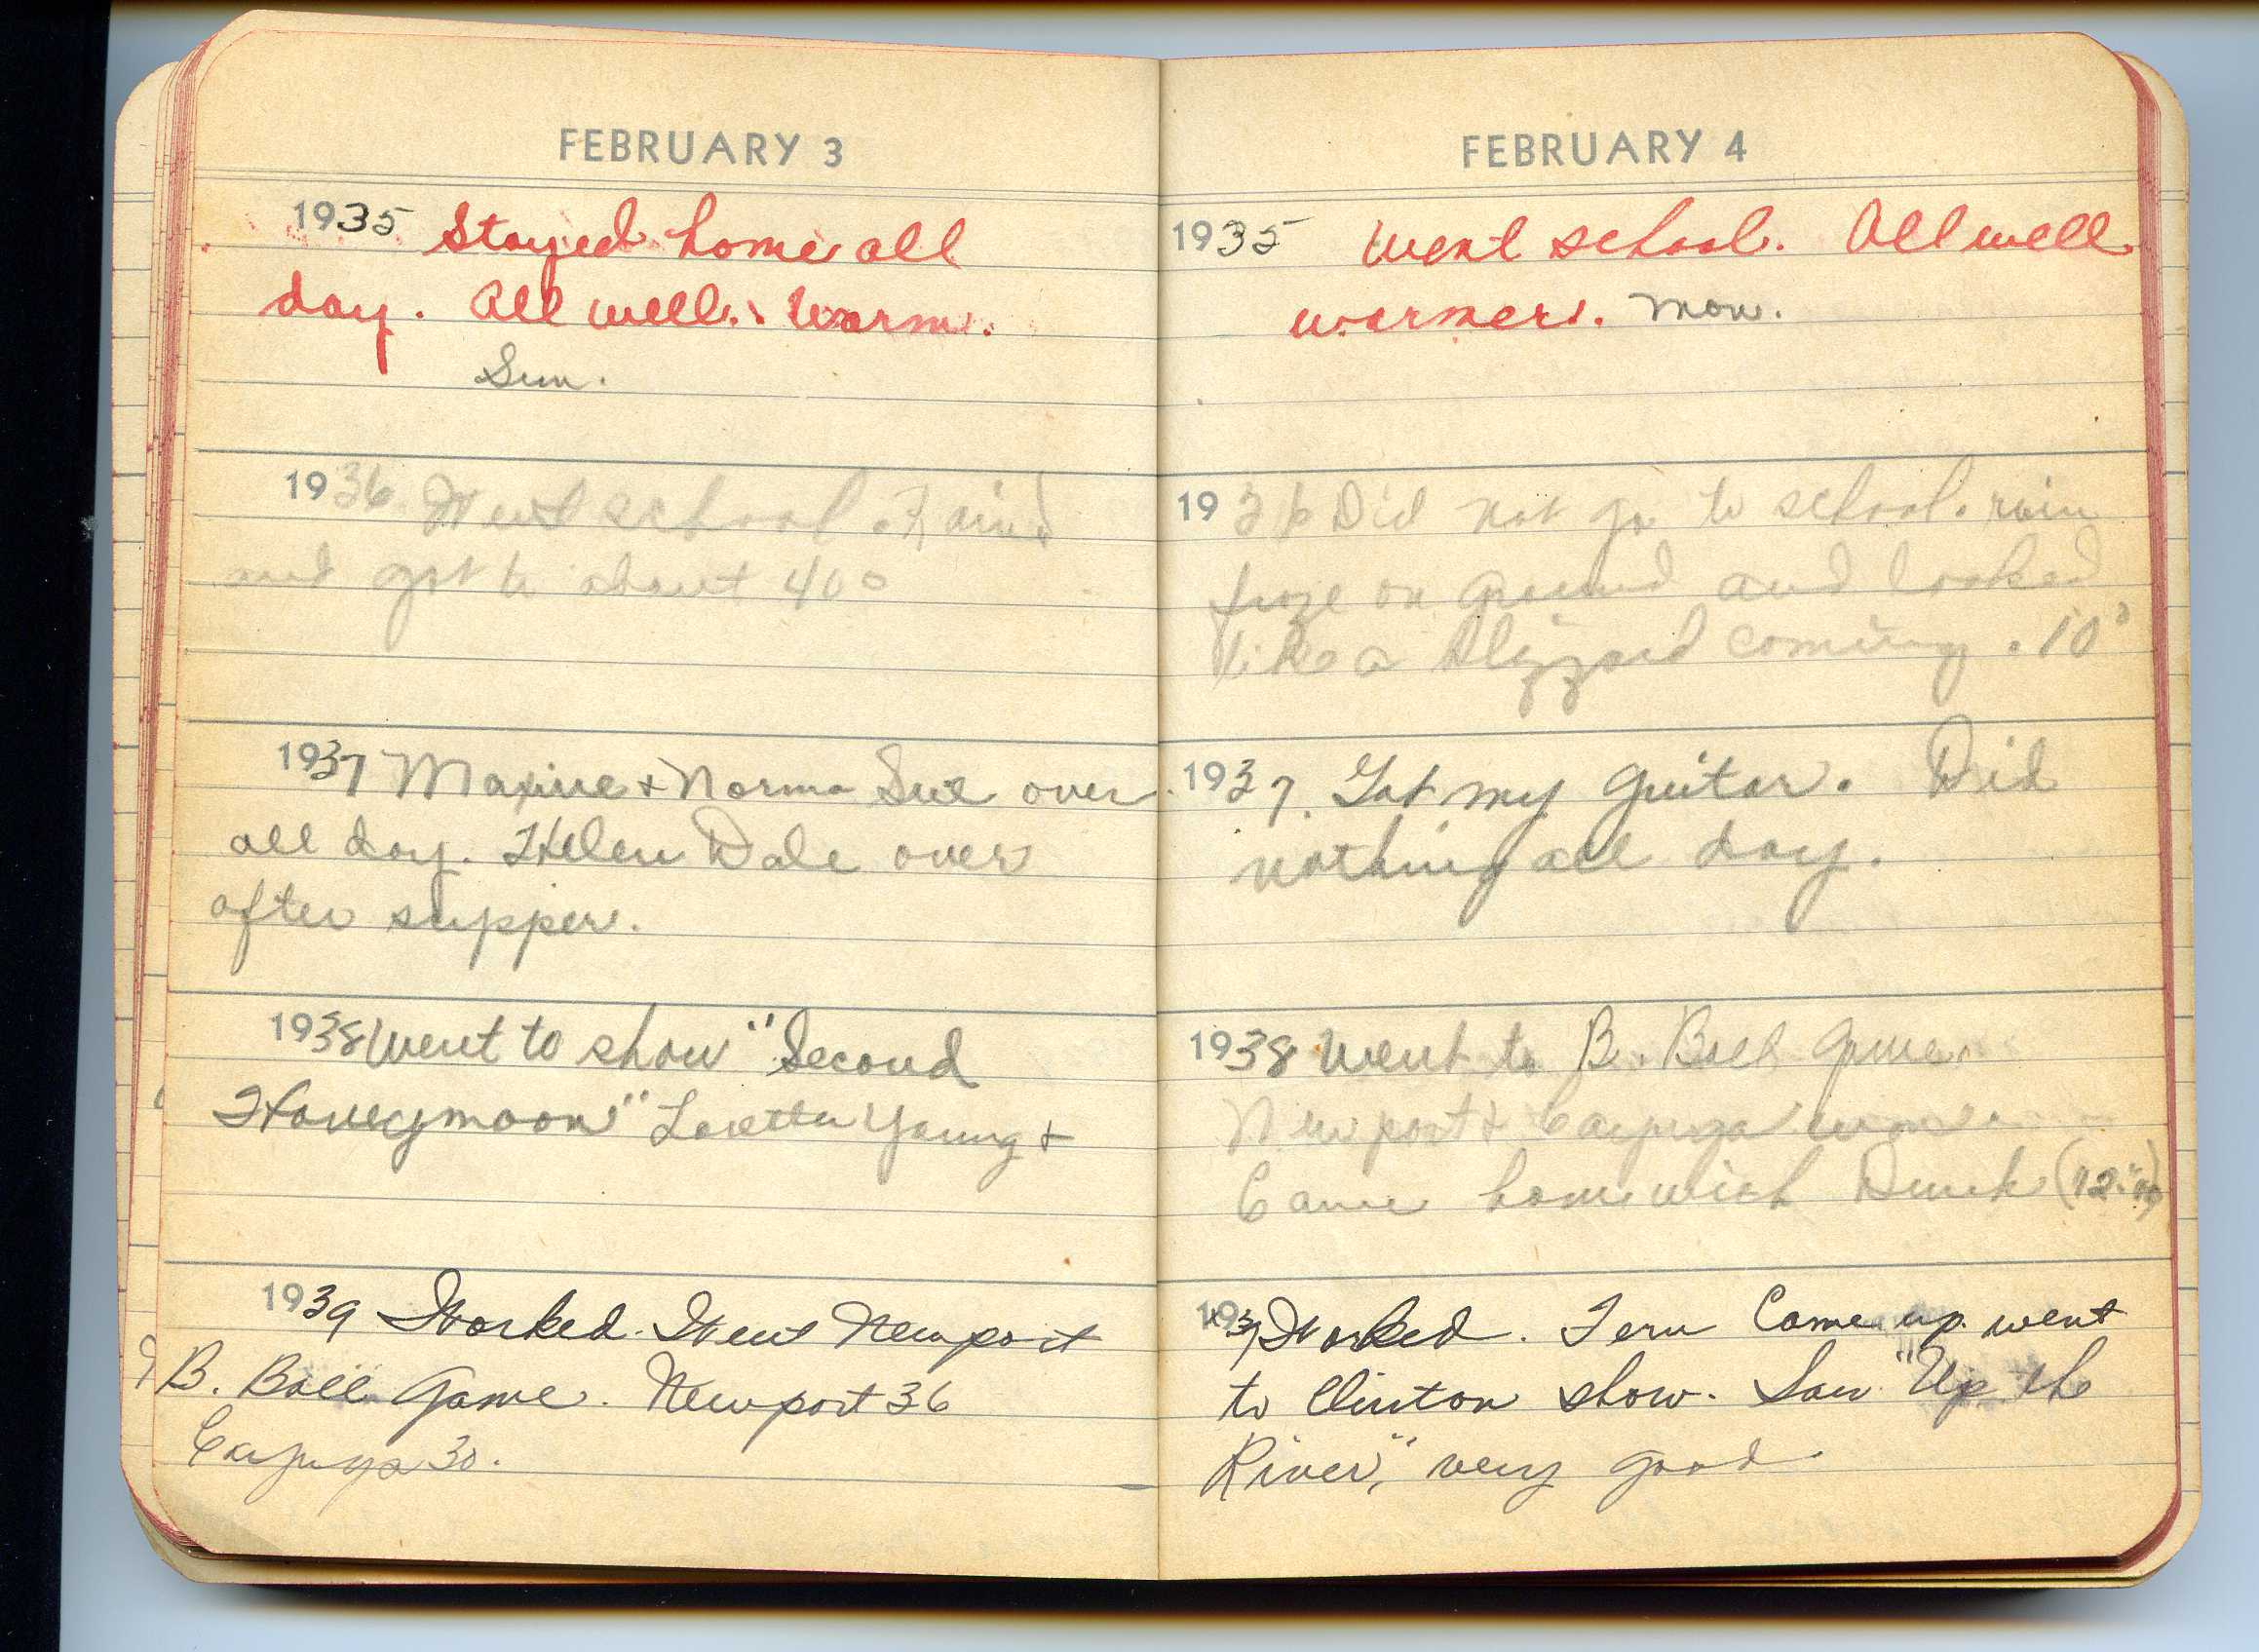 FEBRUARY 3
1935 Stayed home all
day. All well. Warm.
Sun.
1936 Went school. Rained
and got to about 40°
1937 Maxine + Norma Sue over
all day. Helen Dale over
after supper.
1938 Went to show "Second
Honeymoon" Loretta Young +
1939 Worked. Went Newport
B. Ball Game. Newport 36
Cayuga 30.
FEBRUARY 4
1935 Went school. All well
warmer. Mon.
1936 Did not go to school. rain
froze on ground and looked
like a blizzard coming. 10°
1937. Got my guitar. Did
nothing all day.
1938 Went to B. Ball Game
Newport + Cayuga
Came home with (12:10)
1939 Worked. Fern Came up went
to Clinton show. Saw "Up the
River," very good.